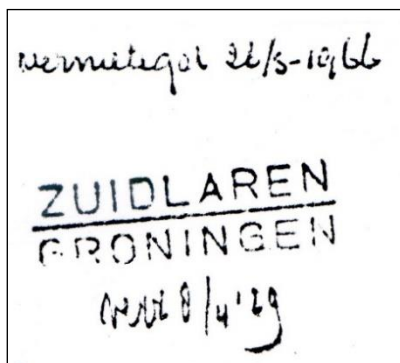 vernietigd 22/3-1966
ZUIDLAREN
GRONINGEN
8/4'29